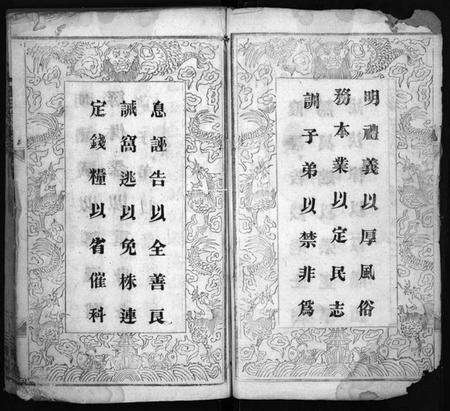 明禮義以厚風俗
務本業以定民志
訓子弟以禁非為
息誣告以全善良
誡窩逃以免株連
定錢糧以省催科